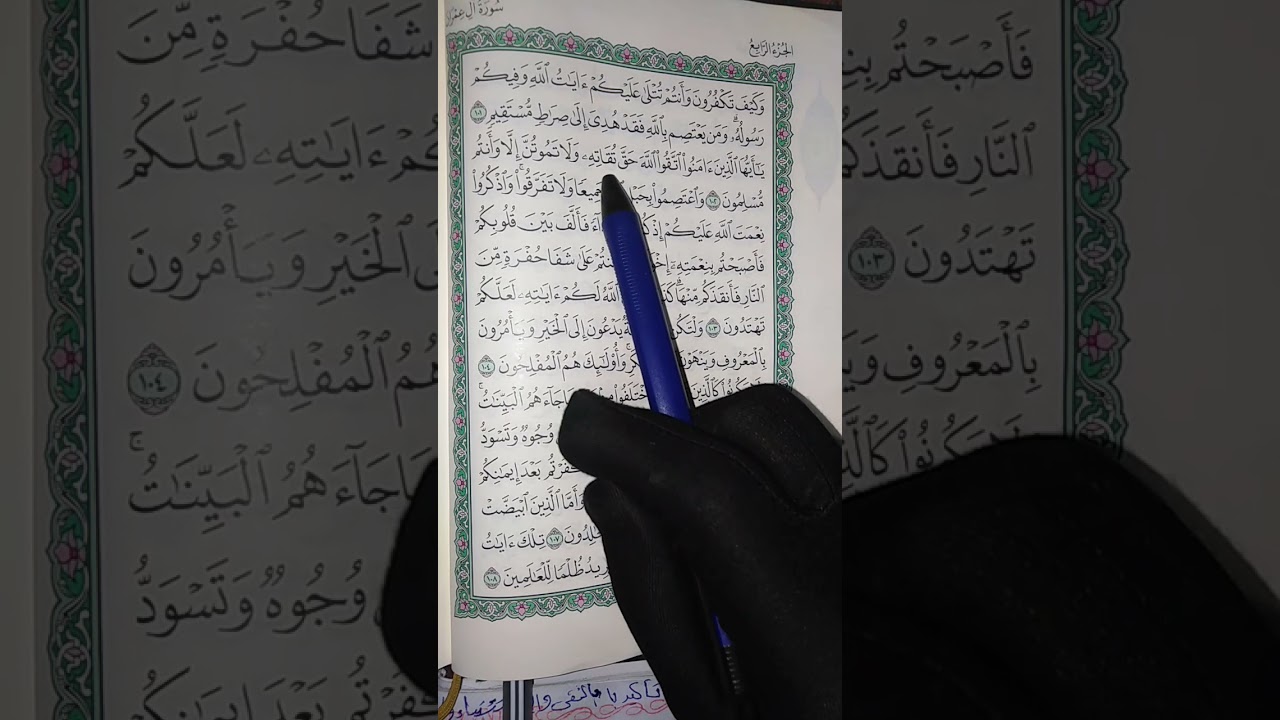 سُورَةُ آلِ عِمْرَانَ
الجُزْءُ الرَّابِعُ
وَكَيْفَ تَكْفُرُونَ وَأَنتُمْ تُتْلَىٰ عَلَيْكُمْ ءَايَٰتُ ٱللَّهِ وَفِيكُمْ
رَسُولُهُۥ ۗ وَمَن يَعْتَصِم بِٱللَّهِ فَقَدْ هُدِىَ إِلَىٰ صِرَٰطٍ مُّسْتَقِيمٍ ١٠١
يَٰٓأَيُّهَا ٱلَّذِينَ ءَامَنُوا۟ ٱتَّقُوا۟ ٱللَّهَ حَقَّ تُقَاتِهِۦ وَلَا تَمُوتُنَّ إِلَّا وَأَنتُم
مُّسْلِمُونَ ١٠٢ وَٱعْتَصِمُوا۟ بِحَبْلِ جَمِيعًا وَلَا تَفَرَّقُوا۟ ۚ وَٱذْكُرُوا۟
نِعْمَتَ ٱللَّهِ عَلَيْكُمْ إِذْ فَأَلَّفَ بَيْنَ قُلُوبِكُمْ
فَأَصْبَحْتُم بِنِعْمَتِهِۦٓ عَلَىٰ شَفَا حُفْرَةٍ مِّنَ
ٱلنَّارِ فَأَنقَذَكُم مِّنْهَا ۗ ٱللَّهُ لَكُمْ ءَايَٰتِهِۦ لَعَلَّكُمْ
تَهْتَدُونَ ١٠٣ يَدْعُونَ إِلَى ٱلْخَيْرِ وَيَأْمُرُونَ
بِٱلْمَعْرُوفِ وَيَنْهَوْنَ وَأُو۟لَٰٓئِكَ هُمُ ٱلْمُفْلِحُونَ ١٠٤
كَٱلَّذِينَ جَآءَهُمُ ٱلْبَيِّنَٰتُ ۚ
وُجُوهٌ وَتَسْوَدُّ
بَعْدَ إِيمَٰنِكُمْ
وَأَمَّا ٱلَّذِينَ ٱبْيَضَّتْ
١٠٧ تِلْكَ ءَايَٰتُ
ظُلْمًا لِّلْعَٰلَمِينَ ١٠٨